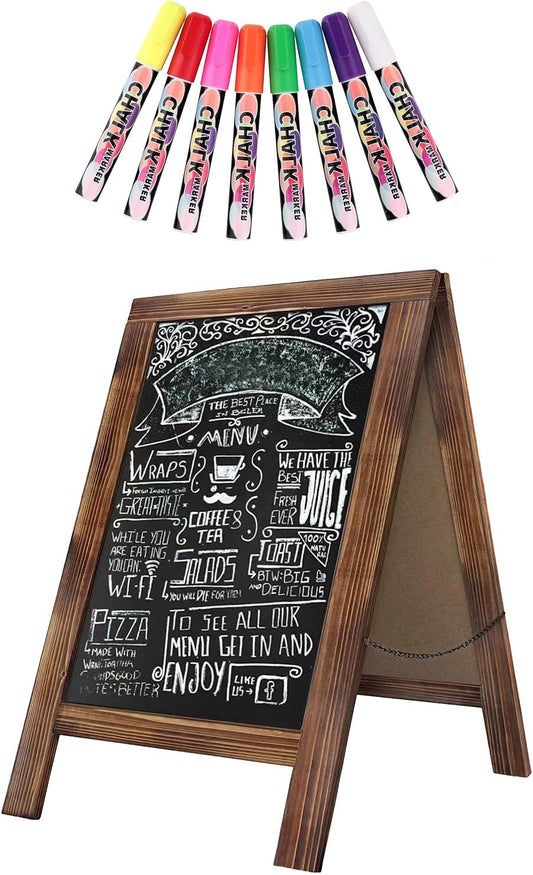 CHALK MARKER
CHALK MARKER
CHALK MARKER
CHALK MARKER
CHALK MARKER
CHALK MARKER
CHALK MARKER
CHALK MARKER
THE BEST PLACE
IN
MENU
WRAPS
FRESH
GREAT TASTE
WHILE YOU
ARE EATING
YOU CAN
WI-FI
PIZZA
MADE WITH
BETTER
COFFEE &
TEA
SALADS
YOU WILL DIE FOR
WE HAVE THE
BEST
FRESH
EVER
JUICE
TOAST
100%
NATURAL
BTW: BIG
AND DELICIOUS
TO SEE ALL OUR
MENU GET IN AND
ENJOY
LIKE
US
f